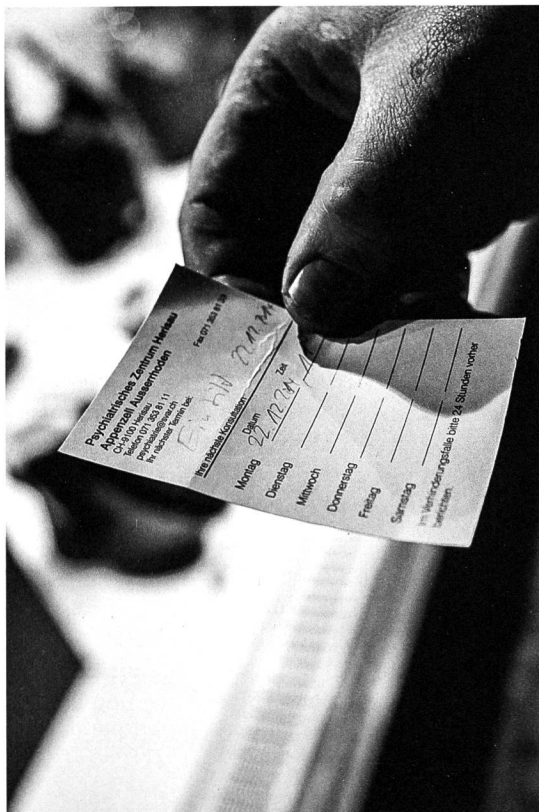 Psychiatrisches Zentrum Herisau
Appenzell Ausserrhoden
CH-9100 Herisau
Telefon 071 353 81 11 Fax 071 353 81
psychiatrie@svar.ch
Ihr nächster Termin bei:
Eintritt
Ihre nächste Konsultation
Datum Zeit
Montag
Dienstag
Mittwoch
Donnerstag
Freitag
Samstag
Im Verhinderungsfalle bitte 24 Stunden vorher
berichten.